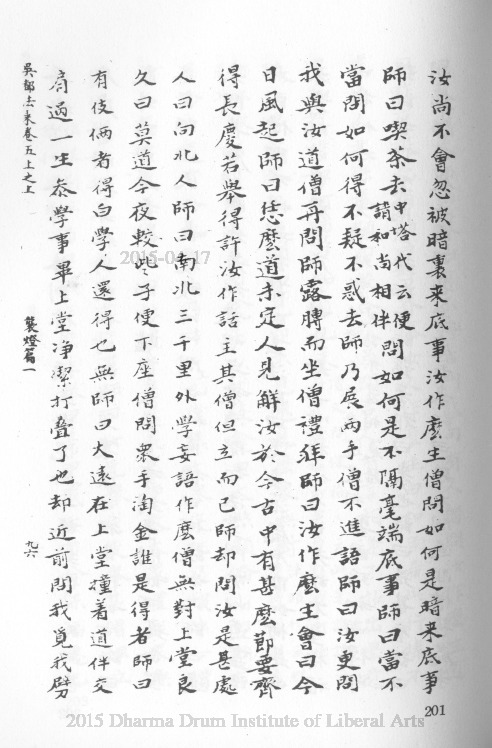 汝尚不會忽被暗裏來底事汝作麼生僧問如何是暗來底事
師曰喫茶去中塔代云便請和尚相伴問如何是不隔毫端底事師曰當不
當問如何得不疑不惑去師乃展兩手僧不進語師曰汝更問
我與汝道僧再問師露膊而坐僧禮拜師曰汝作麼生會曰今
日風起師曰恁麼道未定人見解汝於今古中有甚麼節要齊
得長慶若舉得許汝作話主其僧但立而已師却問汝是甚處
人曰向北人師曰南北三千里外學妄語作麼僧無對上堂良
久曰莫道今夜較些子便下座僧問衆手淘金誰是得者師曰
有伎倆者得曰學人還得也無師曰大遠在上堂撞着道伴交
肩過一生參學事畢上堂淨潔打疊了也却近前問我覓我劈
吳都法乘卷五上之上
襲燈篇一
九六
201
2015-04-17
2015 Dharma Drum Institute of Liberal Arts